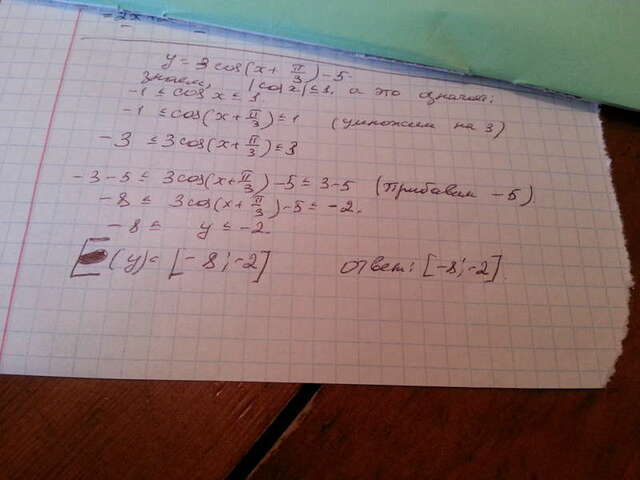 = 2x
y = 3 cos(x + π/3) - 5
знаем, |cos x| ≤ 1, а это означает:
-1 ≤ cos x ≤ 1
-1 ≤ cos(x + π/3) ≤ 1 (умножим на 3)
-3 ≤ 3cos(x + π/3) ≤ 3
-3-5 ≤ 3cos(x + π/3) -5 ≤ 3-5 (прибавим -5)
-8 ≤ 3cos(x + π/3) -5 ≤ -2.
-8 ≤ y ≤ -2
E(y) = [-8; -2] Ответ: [-8; -2].